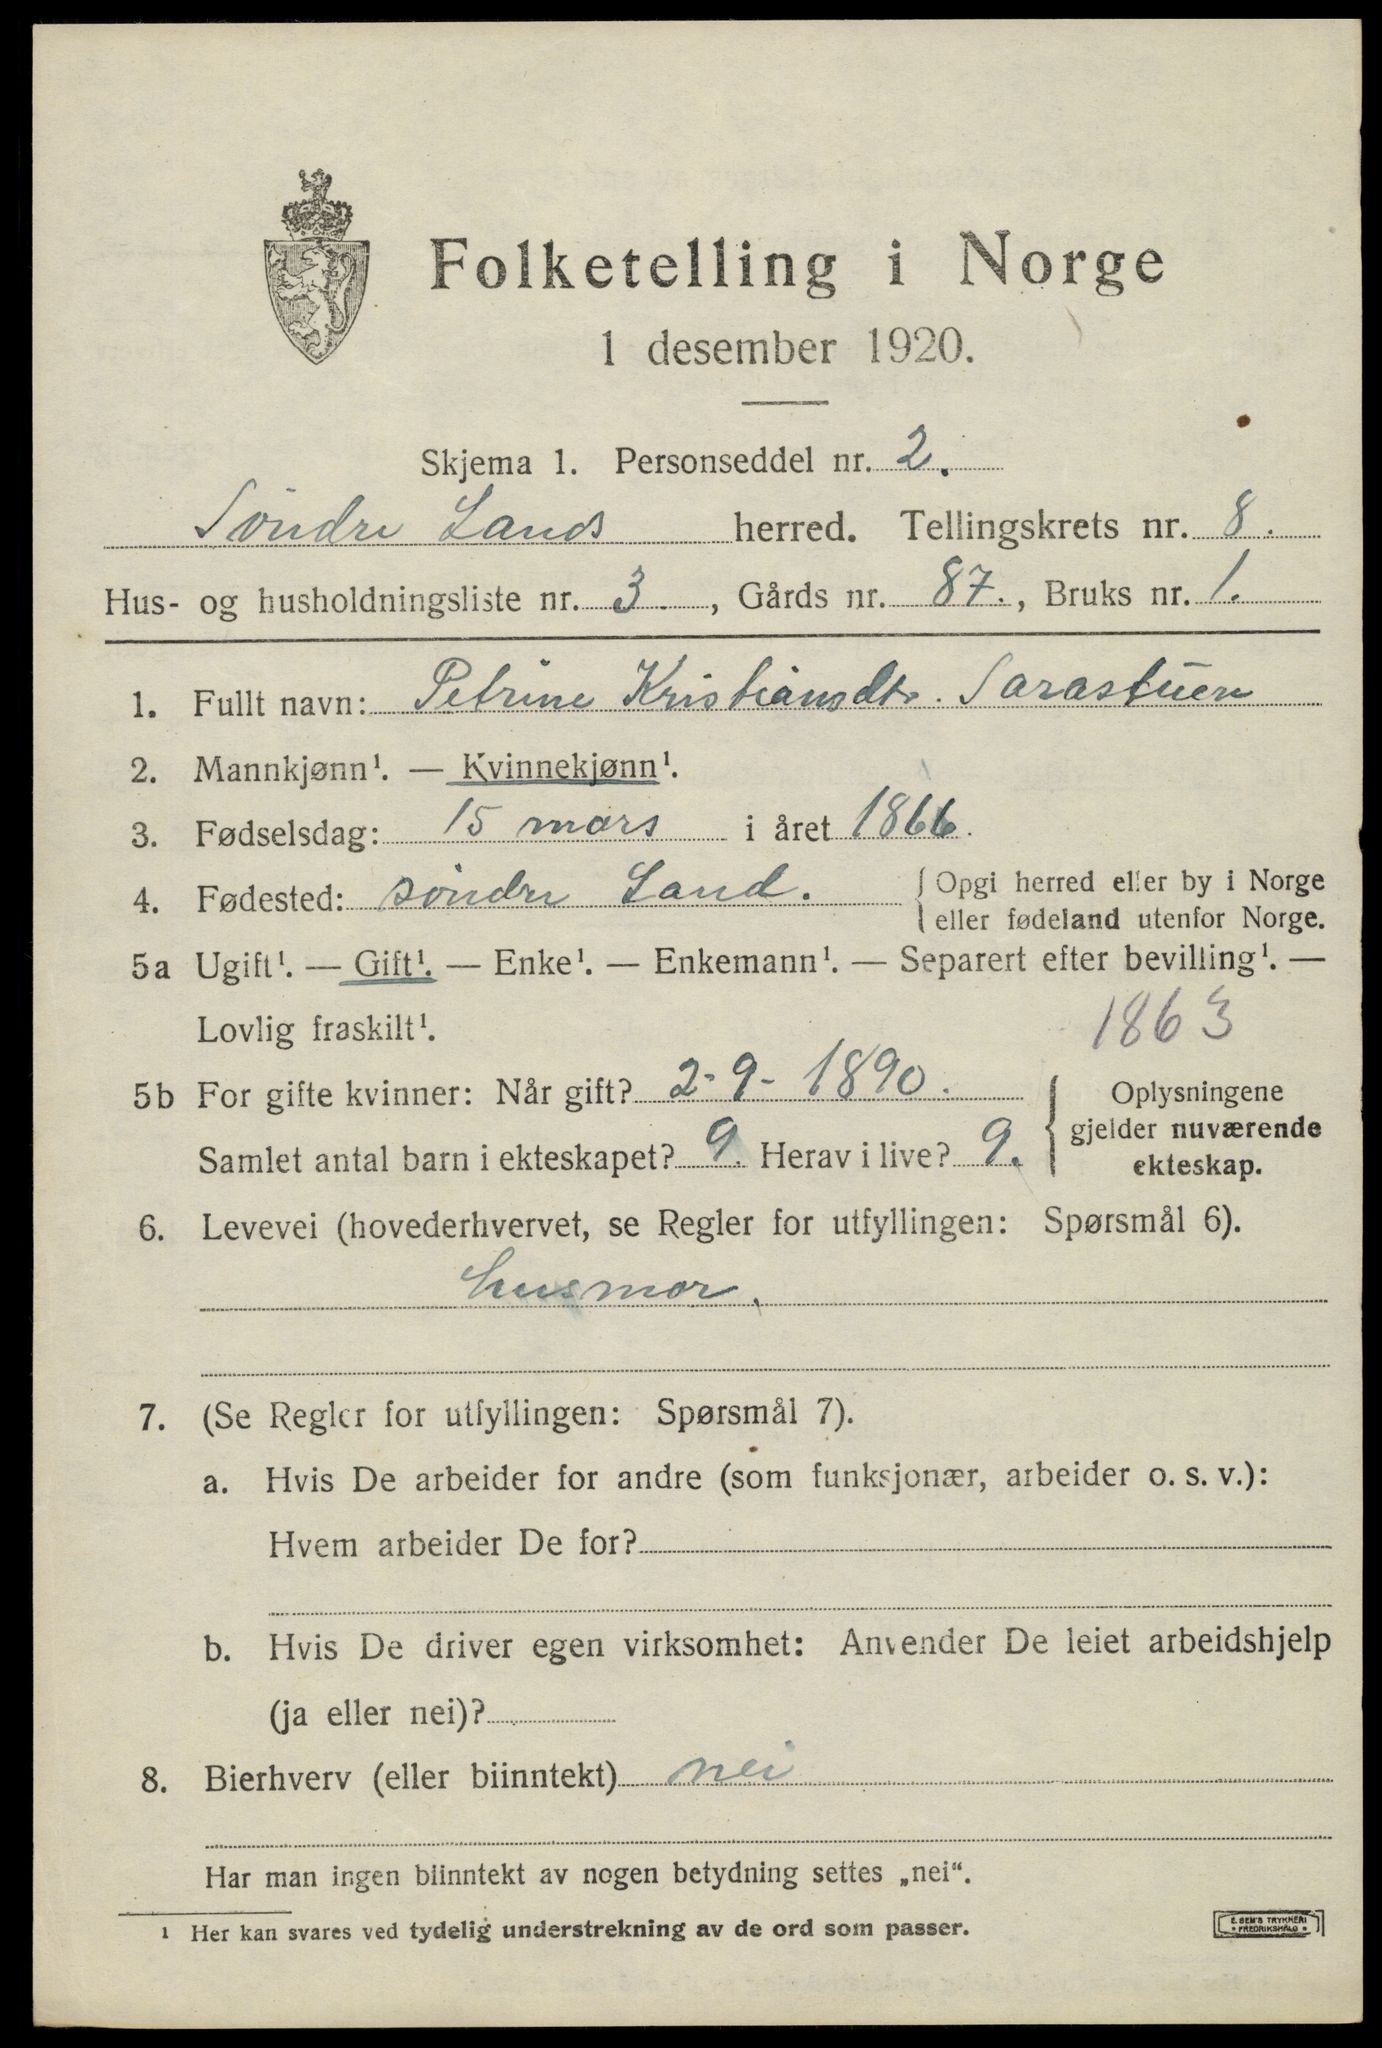 Folketelling i Norge
1 desember 1920.
Skjema 1. Personseddel nr. 2.
Søndre Lands herred. Tellingskrets nr. 8.
Hus- og husholdningsliste nr. 3., Gårds nr. 87., Bruks nr. 1.
1. Fullt navn: Petrine Kristiansdtr. Sarastuen
2. Mannkjønn¹. — Kvinnekjønn¹.
3. Fødselsdag: 15 mars i året 1866.
4. Fødested: søndre Land. { Opgi herred eller by i Norge
eller fødeland utenfor Norge.
5a Ugift¹. — Gift¹. — Enke¹. — Enkemann¹. — Separert efter bevilling¹. —
Lovlig fraskilt¹.
1863
5b For gifte kvinner: Når gift? 2-9-1890. { Oplysningene
gjelder nuværende
Samlet antal barn i ekteskapet? 9. Herav i live? 9.
ekteskap.
6. Levevei (hovederhvervet, se Regler for utfyllingen: Spørsmål 6).
husmor.
7. (Se Regler for utfyllingen: Spørsmål 7).
a. Hvis De arbeider for andre (som funksjonær, arbeider o. s. v.):
Hvem arbeider De for?
b. Hvis De driver egen virksomhet: Anvender De leiet arbeidshjelp
(ja eller nei)?
8. Bierhverv (eller biinntekt) nei
Har man ingen biinntekt av nogen betydning settes „nei“.
¹ Her kan svares ved tydelig understrekning av de ord som passer.
E. SEM'S TRYKKERI
• FREDRIKSHALD •